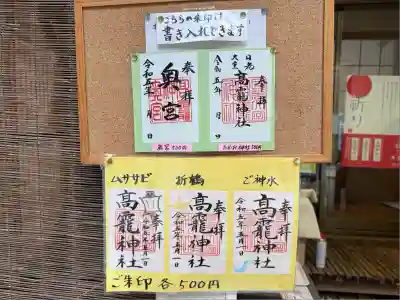 こちらの朱印は
書き入れできます
奉拝
奥宮
令和五年 月 日
奥宮 500円
奉拝
日光
大室
高龗神社
令和五年 月 日
ムササビ
折鶴
ご神水
奉拝
高龗神社
令和五年五月一日
奉拝
高龗神社
令和五年五月一日
奉拝
高龗神社
令和五年五月一日
ご朱印 各500円
祈り